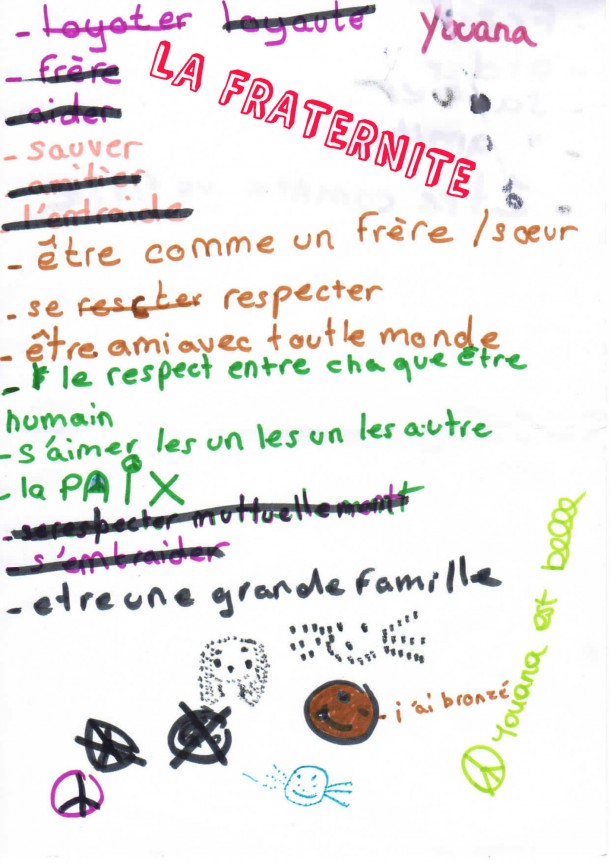 - loyoter loyauté
Youana
- frère
LA FRATERNITE
- aider
- sauver
- amitier
- l'entraide
- être comme un frère / sœur
- se rescter respecter
- être ami avec tout le monde
- le respect entre chaque être
humain
- s'aimer les un les un les autre
- la PAIX
- se respecter muttuellement
- s'emtraider
- etre une grande famille
- j'ai bronzé
Youana est belle